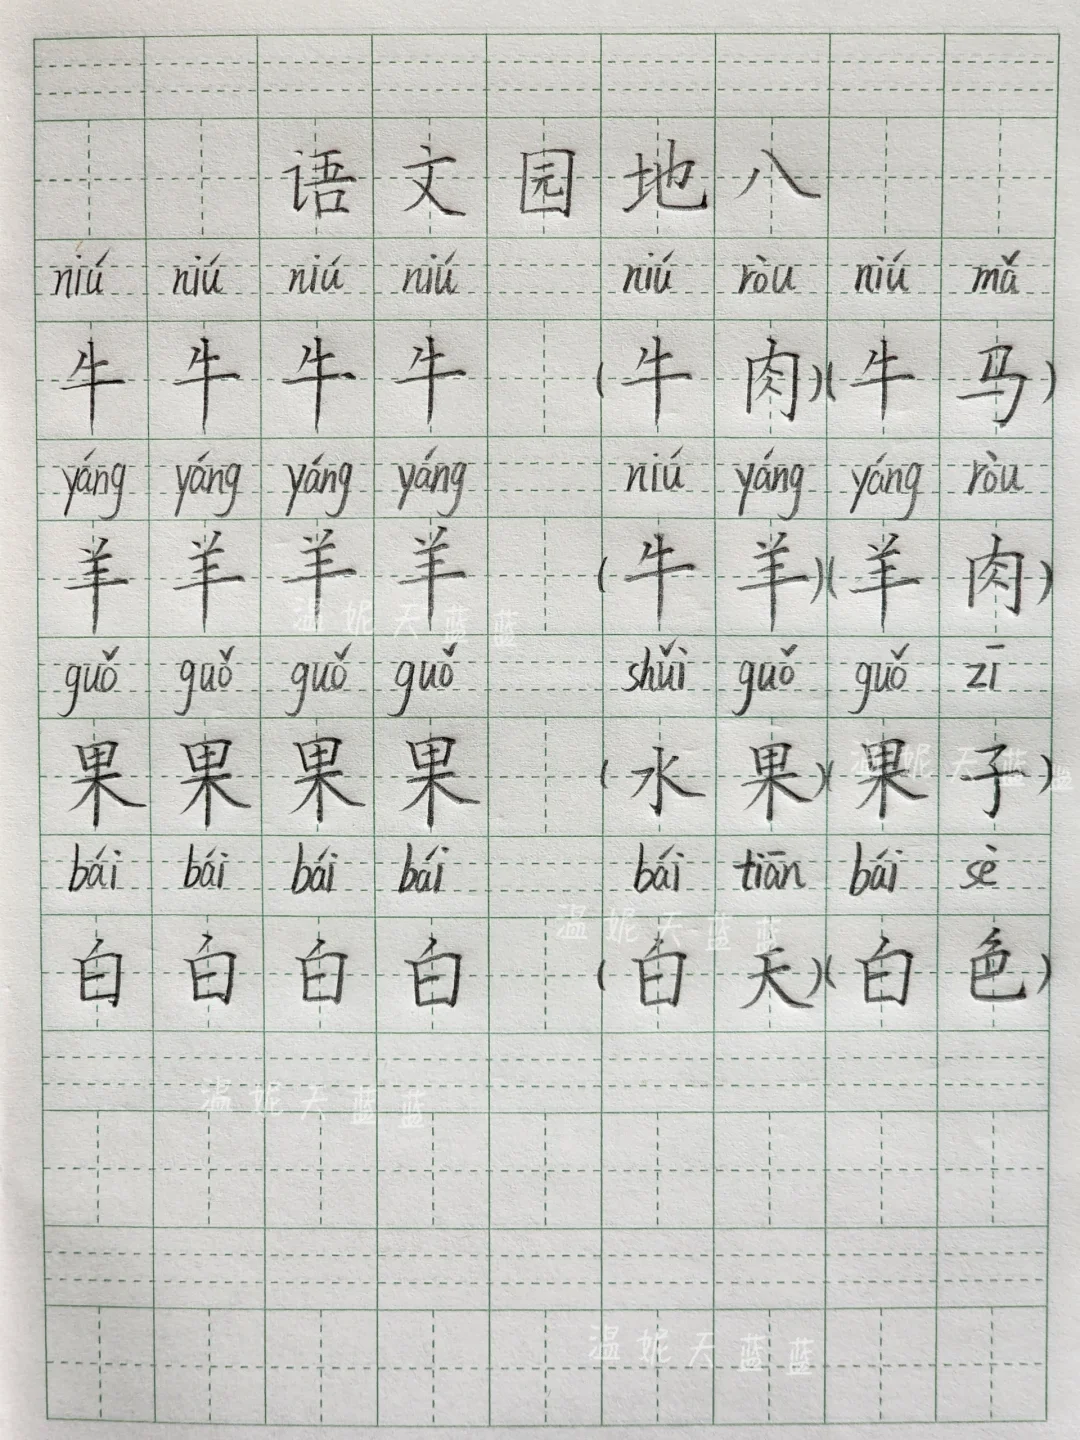 语文园地八
niú niú niú niú niú ròu niú mǎ
牛 牛 牛 牛 (牛肉)(牛马)
yáng yáng yáng yáng niú yáng yáng ròu
羊 羊 羊 羊 (牛羊)(羊肉)
guǒ guǒ guǒ guǒ shuǐ guǒ guǒ zī
果 果 果 果 (水果)(果子)
bái bái bái bái bái tiān bái sè
白 白 白 白 (白天)(白色)
温妮天蓝蓝
温妮天蓝蓝
温妮天蓝蓝
温妮天蓝蓝
温妮天蓝蓝